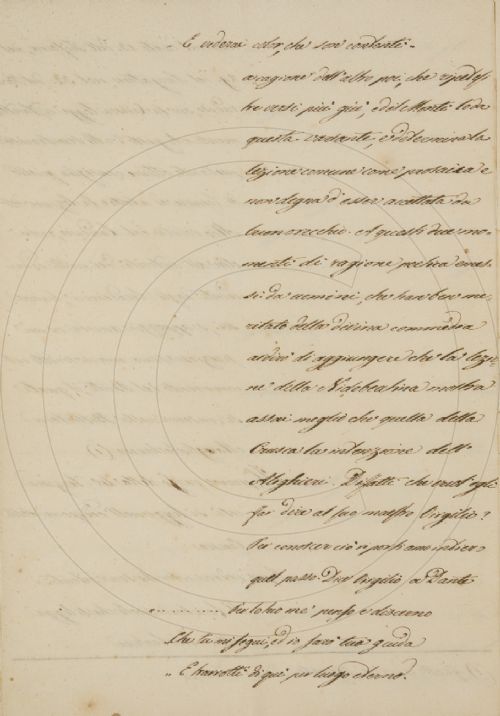 E vederai color, che son contenti -
a cagione dell'altro poi, che ripetesi
tre versi più giù, ed il Monti loda
questa variante, e determina la
lezione comune come prosaica e
non degna d'esser accettata da
buon orecchio. A questi due mo-
menti di ragione poetica emes-
si da uomini, che han ben me-
ritato della divina commedia
ardirò di aggiungere che la lezio-
ne della mostra
assai meglio che quella della
Crusca la intenzione dell'
Alighieri. Difatti che cosa egli
fa dire al suo maestro Virgilio?
Per conoscer ciò riportiamo intiero
quel passo. Dice Virgilio a Dante
„ .......... Per lo tuo me' penso e discerno
Che tu mi segui, ed io sarò tua guida
„ E trarrotti di qui per luogo eterno.